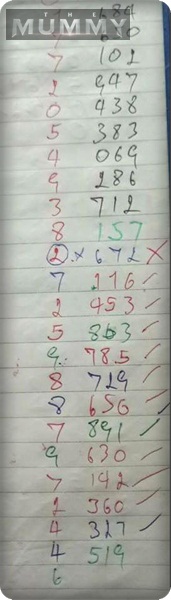 THE
MUMMY
7 102
2 947
0 438
5 383
4 069
9 286
3 712
8 157
2 x 672 X
7 116 ✓
2 453 ✓
5 863 ✓
9 785 ✓
8 729 ✓
8 656 ✓
7 891 ✓
9 630 ✓
7 142 ✓
2 360 ✓
4 327 ✓
4 519
6